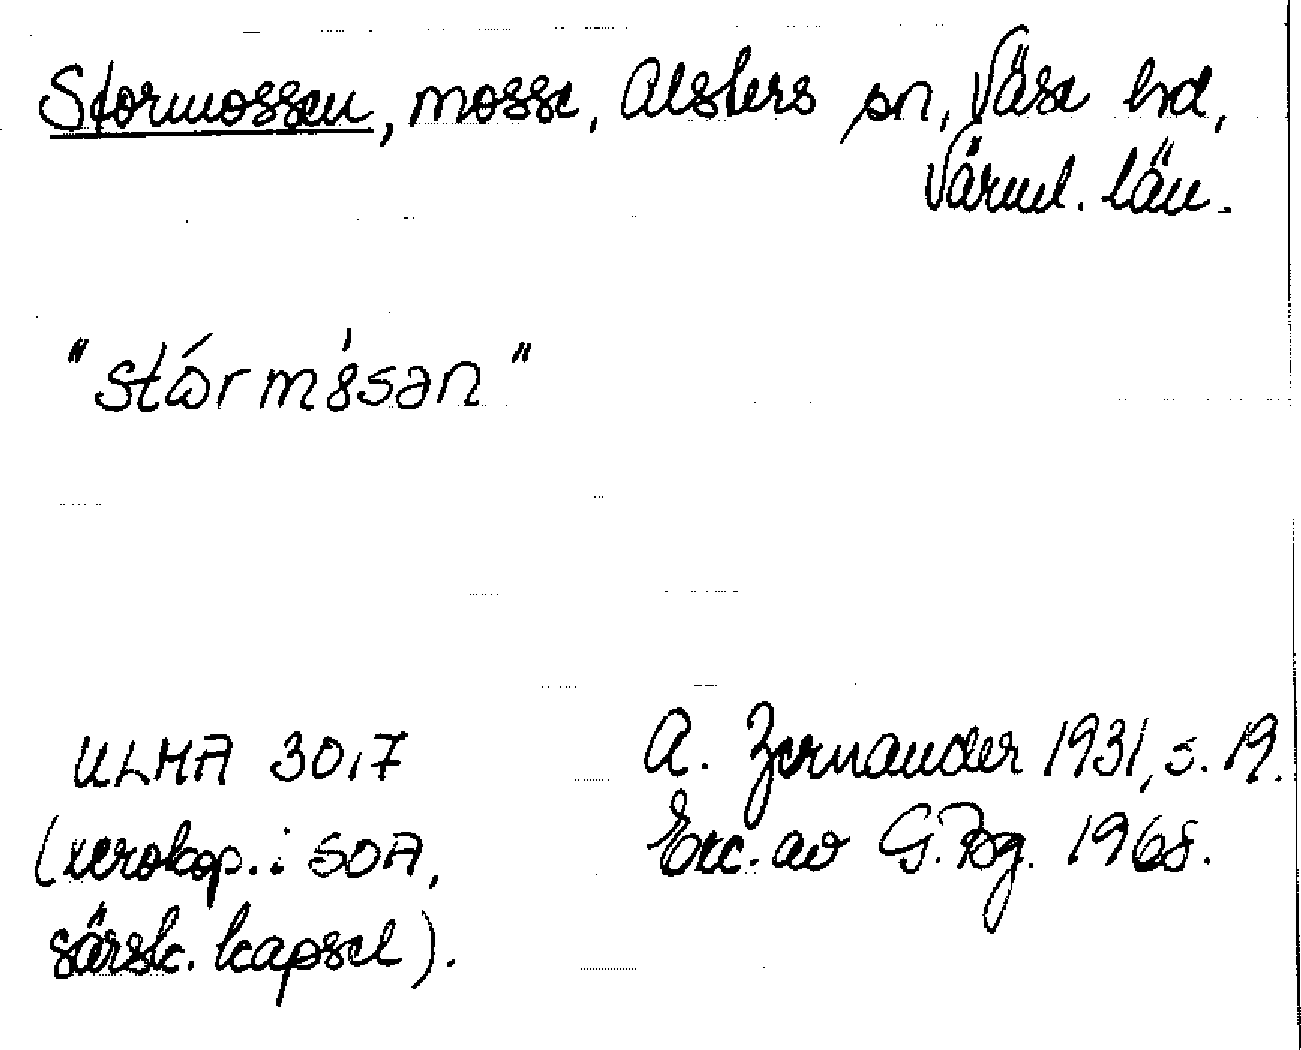 Stormossen, mosse, Alsters sn, Väse hd,
Värml. län.
"stẃrmósan"
ULMA 301,7
(xerokop. i SOA,
särsk. kapsel).
A. Zernander 1931, s. 19.
Exc. av G. Bg. 1968.